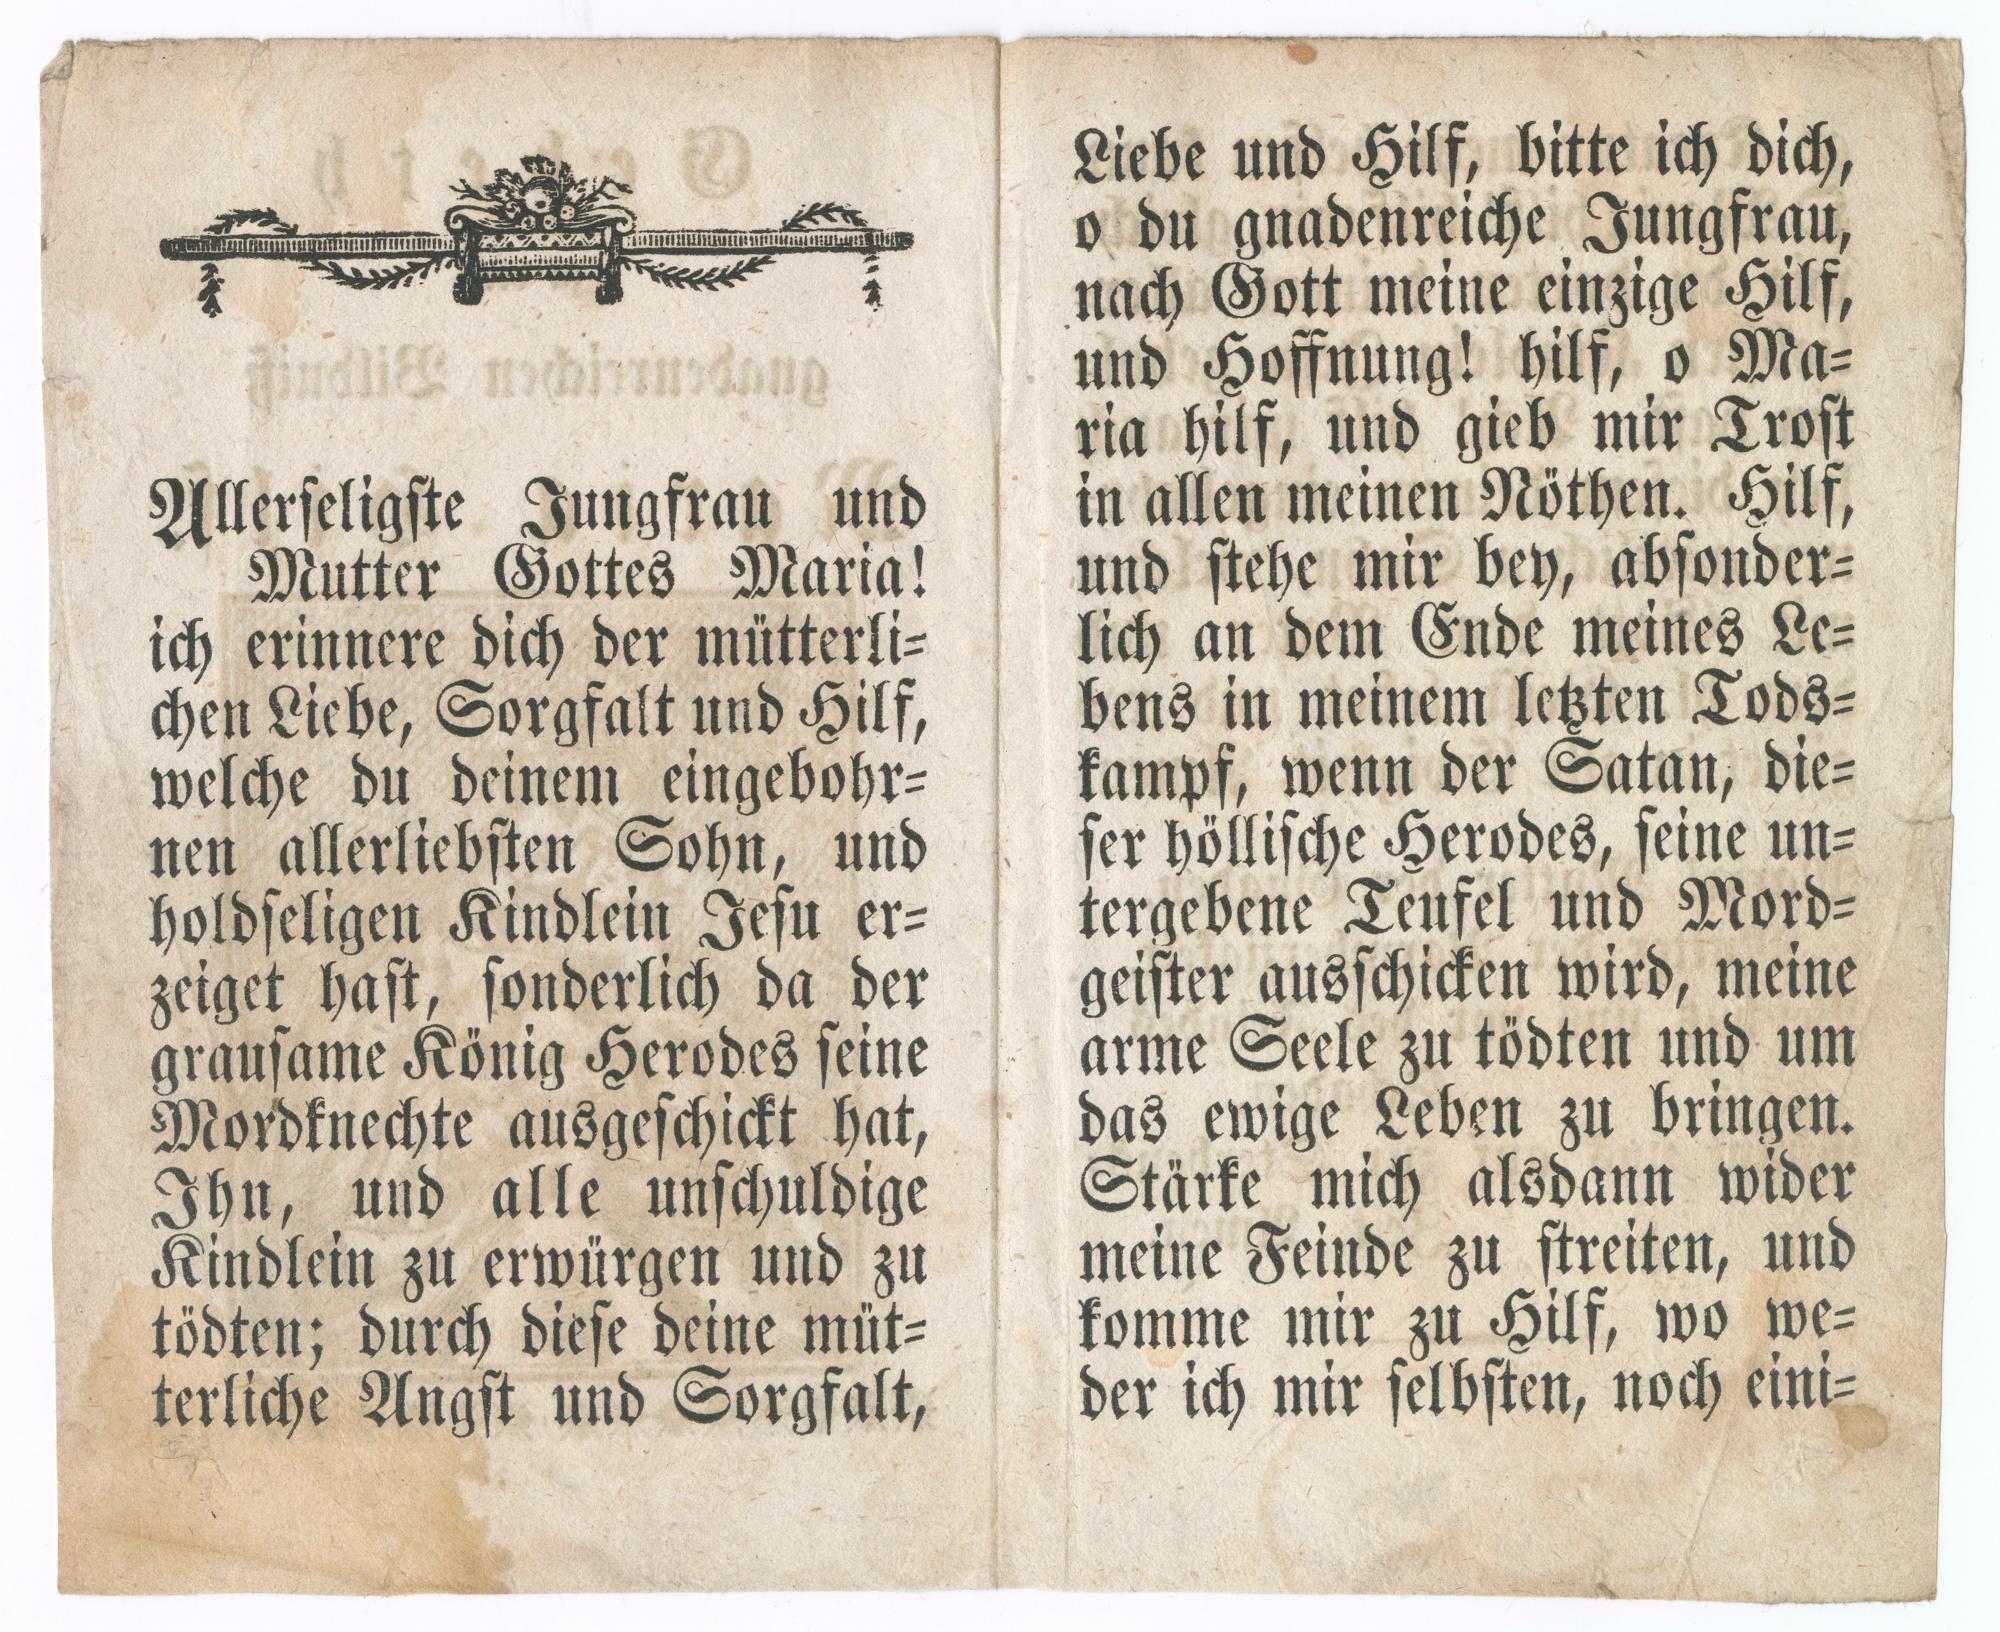 Allerseligste Jungfrau und
Mutter Gottes Maria!
ich erinnere dich der mütterli=
chen Liebe, Sorgfalt und Hilf,
welche du deinem eingebohr=
nen allerliebsten Sohn, und
holdseligen Kindlein Jesu er=
zeiget hast, sonderlich da der
grausame König Herodes seine
Mordknechte ausgeschickt hat,
Ihn, und alle unschuldige
Kindlein zu erwürgen und zu
tödten; durch diese deine müt=
terliche Angst und Sorgfalt,
Liebe und Hilf, bitte ich dich,
o du gnadenreiche Jungfrau,
nach Gott meine einzige Hilf,
und Hoffnung! hilf, o Ma=
ria hilf, und gieb mir Trost
in allen meinen Nöthen. Hilf,
und stehe mir bey, absonder=
lich an dem Ende meines Le=
bens in meinem letzten Tods=
kampf, wenn der Satan, die=
ser höllische Herodes, seine un=
tergebene Teufel und Mord=
geister ausschicken wird, meine
arme Seele zu tödten und um
das ewige Leben zu bringen.
Stärke mich alsdann wider
meine Feinde zu streiten, und
komme mir zu Hilf, wo we=
der ich mir selbsten, noch eini=